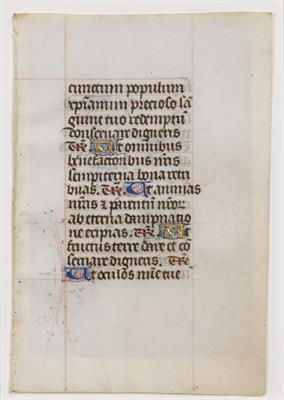 cunctum populum
xp̄ianum precioso sā
guine tuo redemptū
conseruare digneris
Te R̄. Ut omnibus
benefactoribus nr̄is
sempiterna bona retri
buas. Te R̄. Ut animas
nr̄as et parentū nr̄or̄
ab eterna dampnatio
ne eripias. Te R̄. Ut
fructus terre dare et cō
seruare digneris. Te R̄.
Ut oculos mīe tue